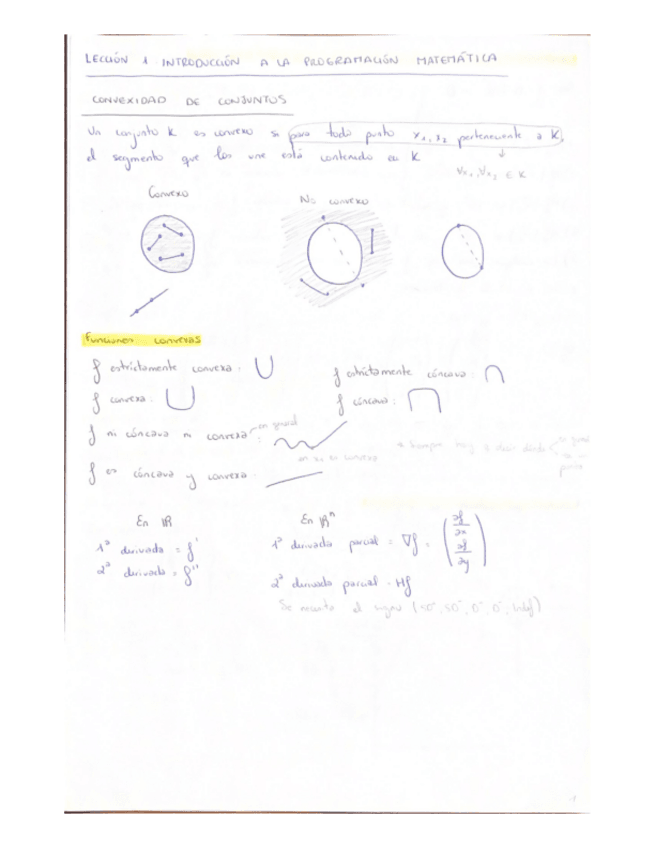 LECCIÓN 1 INTRODUCCIÓN A LA PROGRAMACIÓN MATEMÁTICA
CONVEXIDAD DE CONJUNTOS
Un conjunto K es convexo si para todo punto x₁, x₂ perteneciente a K,
el segmento que los une está contenido en K
∀x₁, ∀x₂ ∈ K
Convexo
No convexo
Funciones convexas
f estrictamente convexa:
f estrictamente cóncava:
f convexa:
f cóncava:
f ni cóncava ni convexa: en general
f es cóncava y convexa
En ℝ
En ℝⁿ
1ª derivada = f'
1ª derivada parcial = ∇f = (∂f/∂x ∂f/∂y)
2ª derivada = f''
2ª derivada parcial = Hf
el signo